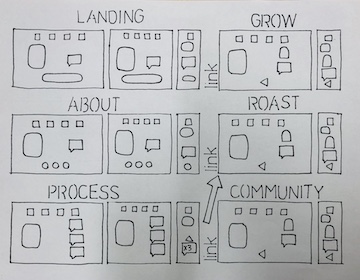 LANDING
GROW
link
ABOUT
ROAST
link
PROCESS
COMMUNITY
x3
link